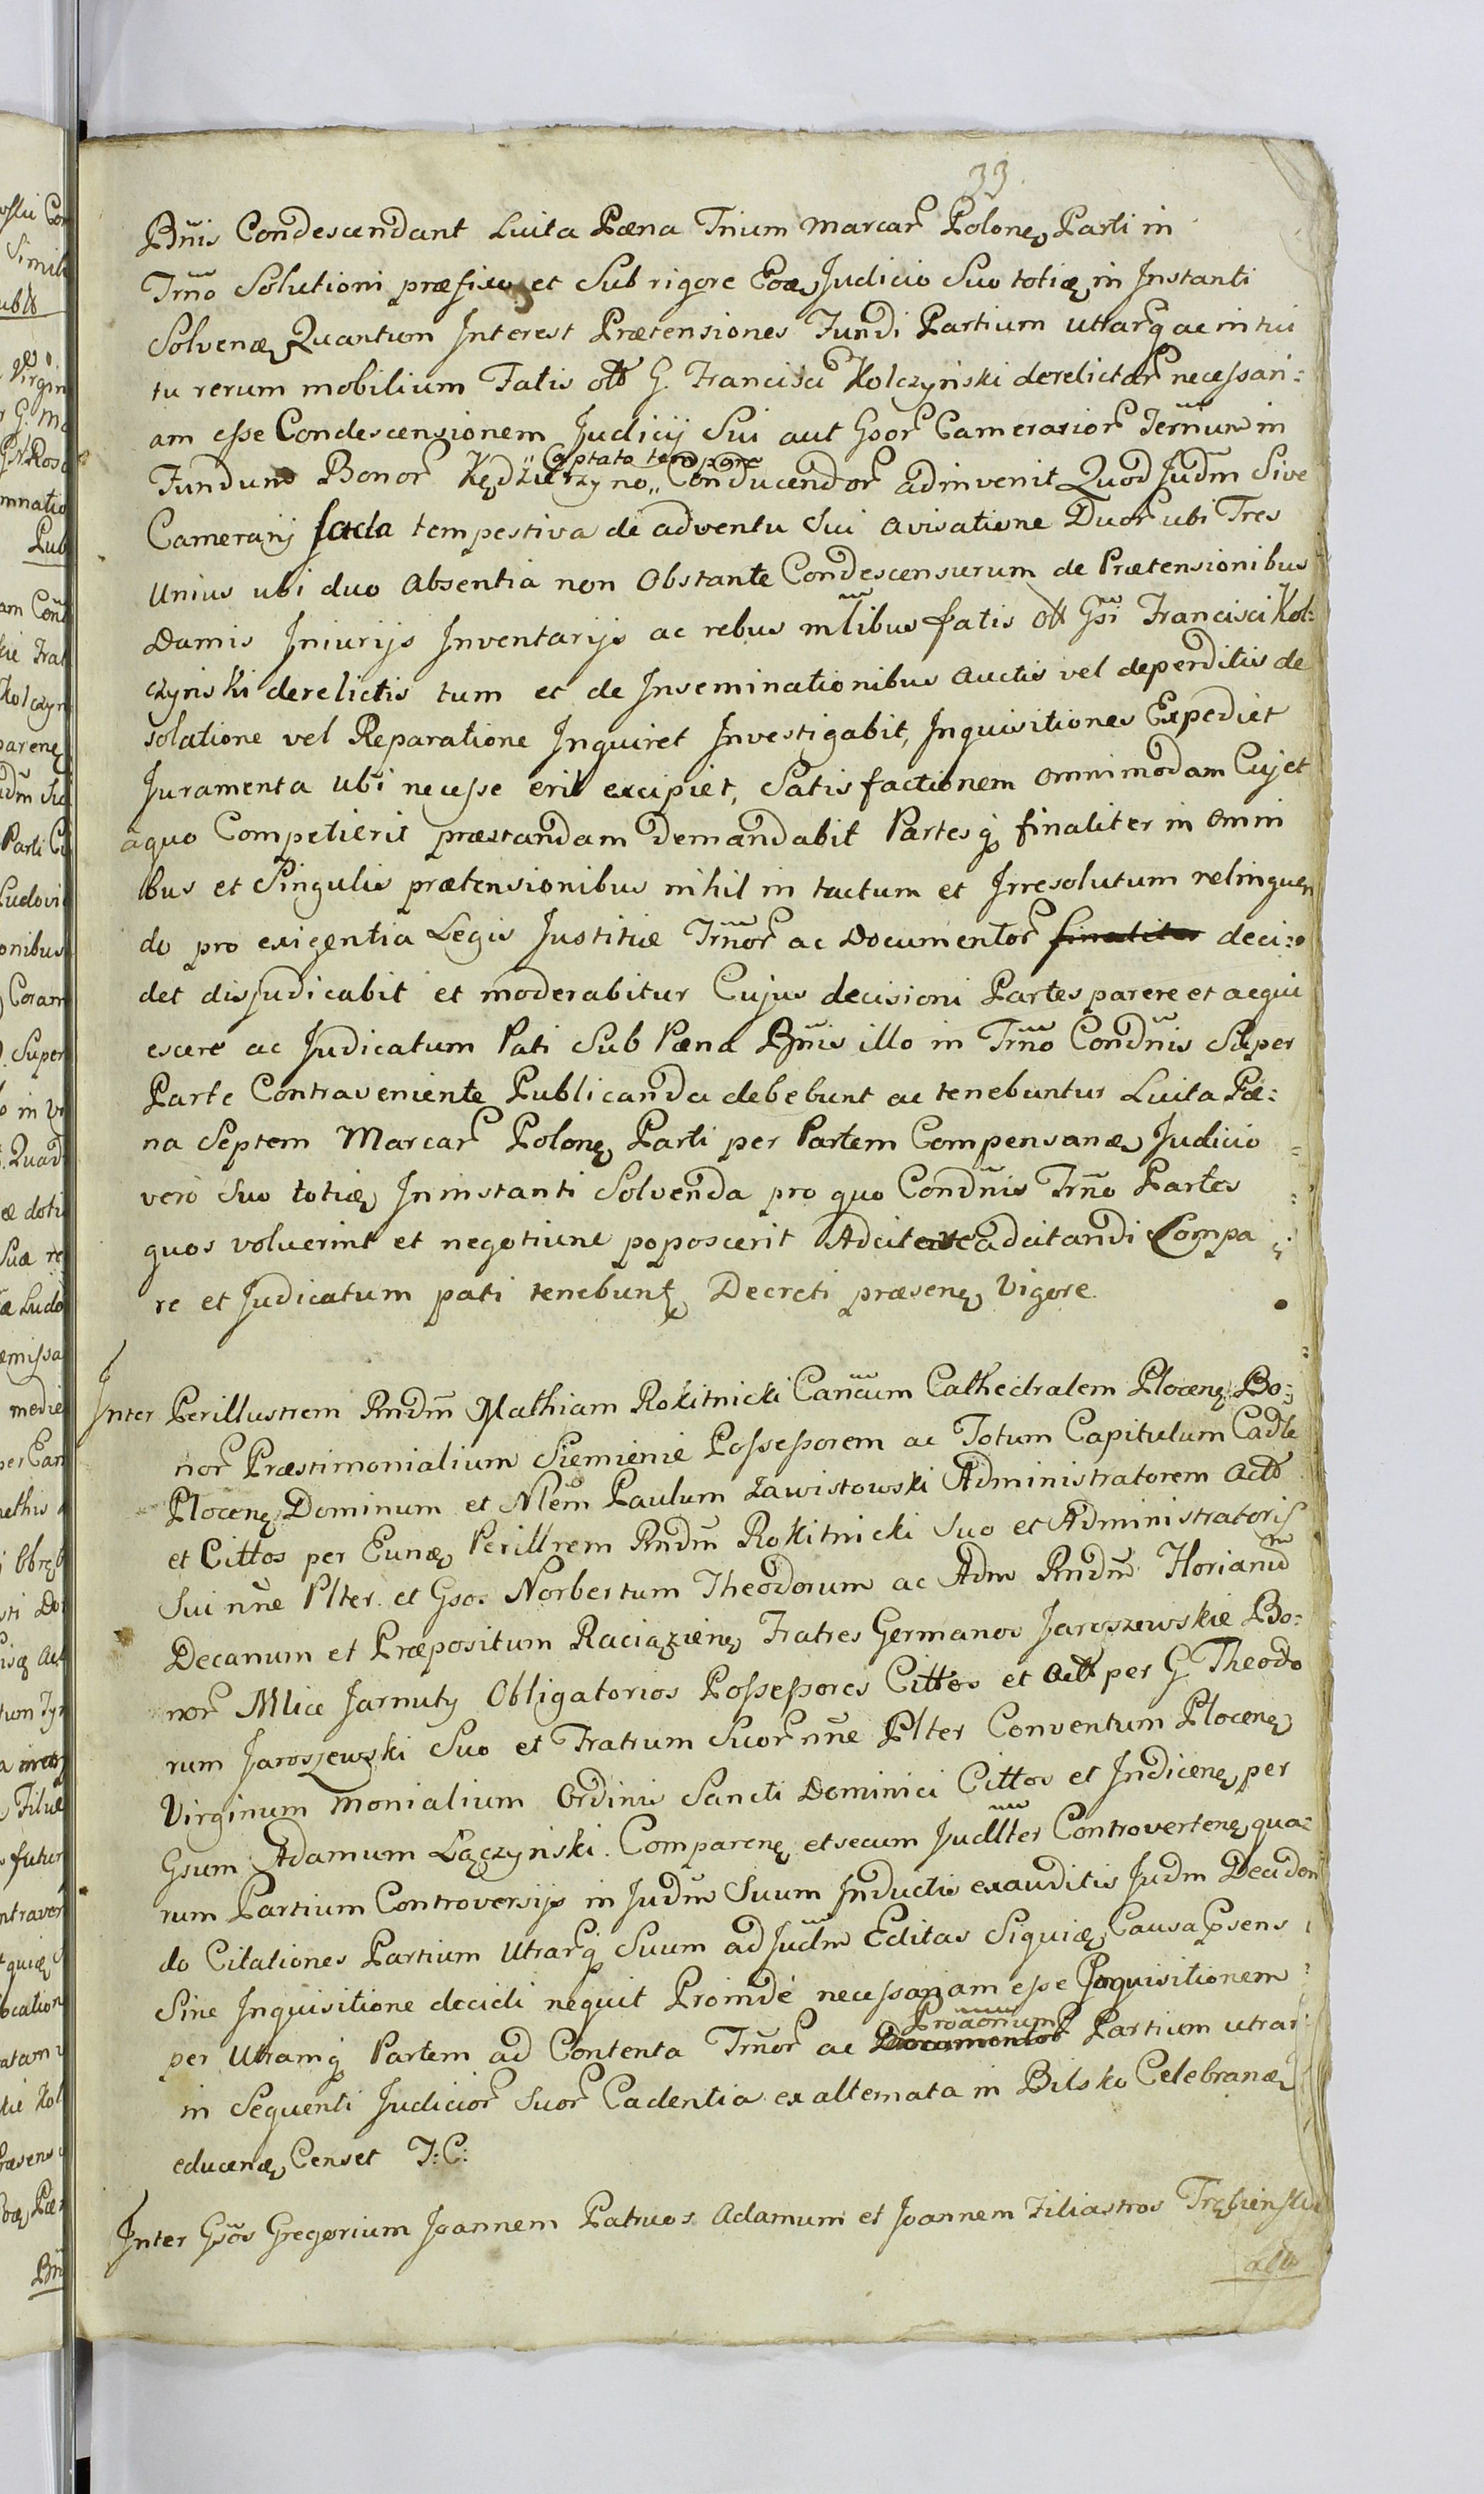 33
Bñis Condescendant Luita Pæna Trium Marcar Poloneȝ Parti in
Trño Solutioni præfixo et Sub rigore Eoæȝ Judicio Suo totiæȝ in Instanti
Solvenæȝ Quantum Interest Prætensiones Fundi Partium utrarq ac intui
tu rerum mobilium Fatis olt G. Francisci Kolczyński derelictar necessari:
am esse Condescensionem Judicij Sui aut Gsor Camerarior Terrnum in
optato tempore
Fundum Bonor Kędzierzyno „ Conducendor adinvenit Quod Judm Sive
Camerarij facta tempestiva de adventu Sui avisatione Duor ubi Tres
Unius ubi duo Absentia non Obstante Condescensurum de Prætensionibus
Damis Iniurijs Inventarijs ac rebus mlibus fatis olt Gsi Francisci Kol:
czyński derelictis tum et de Inseminationibus Auctis vel deperditis de
solatione vel Reparatione Inquiret Investigabit, Inquisitiones Expediet
Juramenta ubi necesse erit excipiet, Satisfactionem omnimodam Cujet
aquo Competierit præstandam Demandabit Partesq finaliter in omni
bus et Singulis prætensionibus nihil in tactum et Irresolutum relinquen
do pro exigentia Legis Justitiæ Trñor ac Documentor finaliter deci:
det disjudicabit et moderabitur Cujus decisioni Partes parere et acqui
escere ac Judicatum Pati Sub Pæna Bñis illo in Trño Condñis Super
Parte Contraveniente Publicanda debebunt ac tenebuntur Luita Pæ:
na Septem Marcar Poloneȝ Parti per Partem Compensanæȝ Judicio
vero Suo totiæȝ In instanti Solvenda pro quo Condñis Trño Partes
quos voluerint et negotium poposcerit Adcitent adcitandi Compa
re et Judicatum pati tenebuntȝ Decreti præseneȝ Vigore.
Inter Perillustrem Rndm Mathiam Rokitnicki Cancum Cathedralem Ploceneȝ Bo:
nor Præstimonialium Siemienie Possessorem ac Totum Capitulum Cadle
Ploceneȝ Dominum et Nlem Paulum Zawistowski Administratorem Actt
et Cittos per Eunæȝ Perillrem Rndm Rokitnicki Suo et Administratoris
Sui nñe Plter. et Gsos Norbertum Theodorum ac Adm Rndm Florianum
Decanum et Præpositum Raciązieneȝ Fratres Germanos Jaroszewskie Bo:
nor Mlice Jarnuty Obligatorios Possessores Cittos et Actt per G. Theodo
rum Jaroszewski Suo et Fratrum Suor nñe Plter Conventum Ploceneȝ
Virginum Monialium Ordinis Sancti Dominici Cittos et Indiceneȝ per
Gsum Adamum Łączyński. Compareneȝ et secum Judllter Controverteneȝ qua:
rum Partium Controversijs in Judm Suum Inductis exauditis Judm Deciden
do Citationes Partium Utrarq Suum ad Judm Editas Siquiæȝ Causa Psens
Sine Inquisitione decidi nequit Proinde necessariam esse Inquisitionem
per Utramq Partem ad Contenta Trñor ac Documentor Proaonium Partium utrar
in Sequenti Judicior Suor Cadentia ex alternata in Bilsko Celebranæȝ
educenæȝ Censet J: C:
Inter Gsos Gregorium Joannem Patruos Adamum et Joannem Filiastros